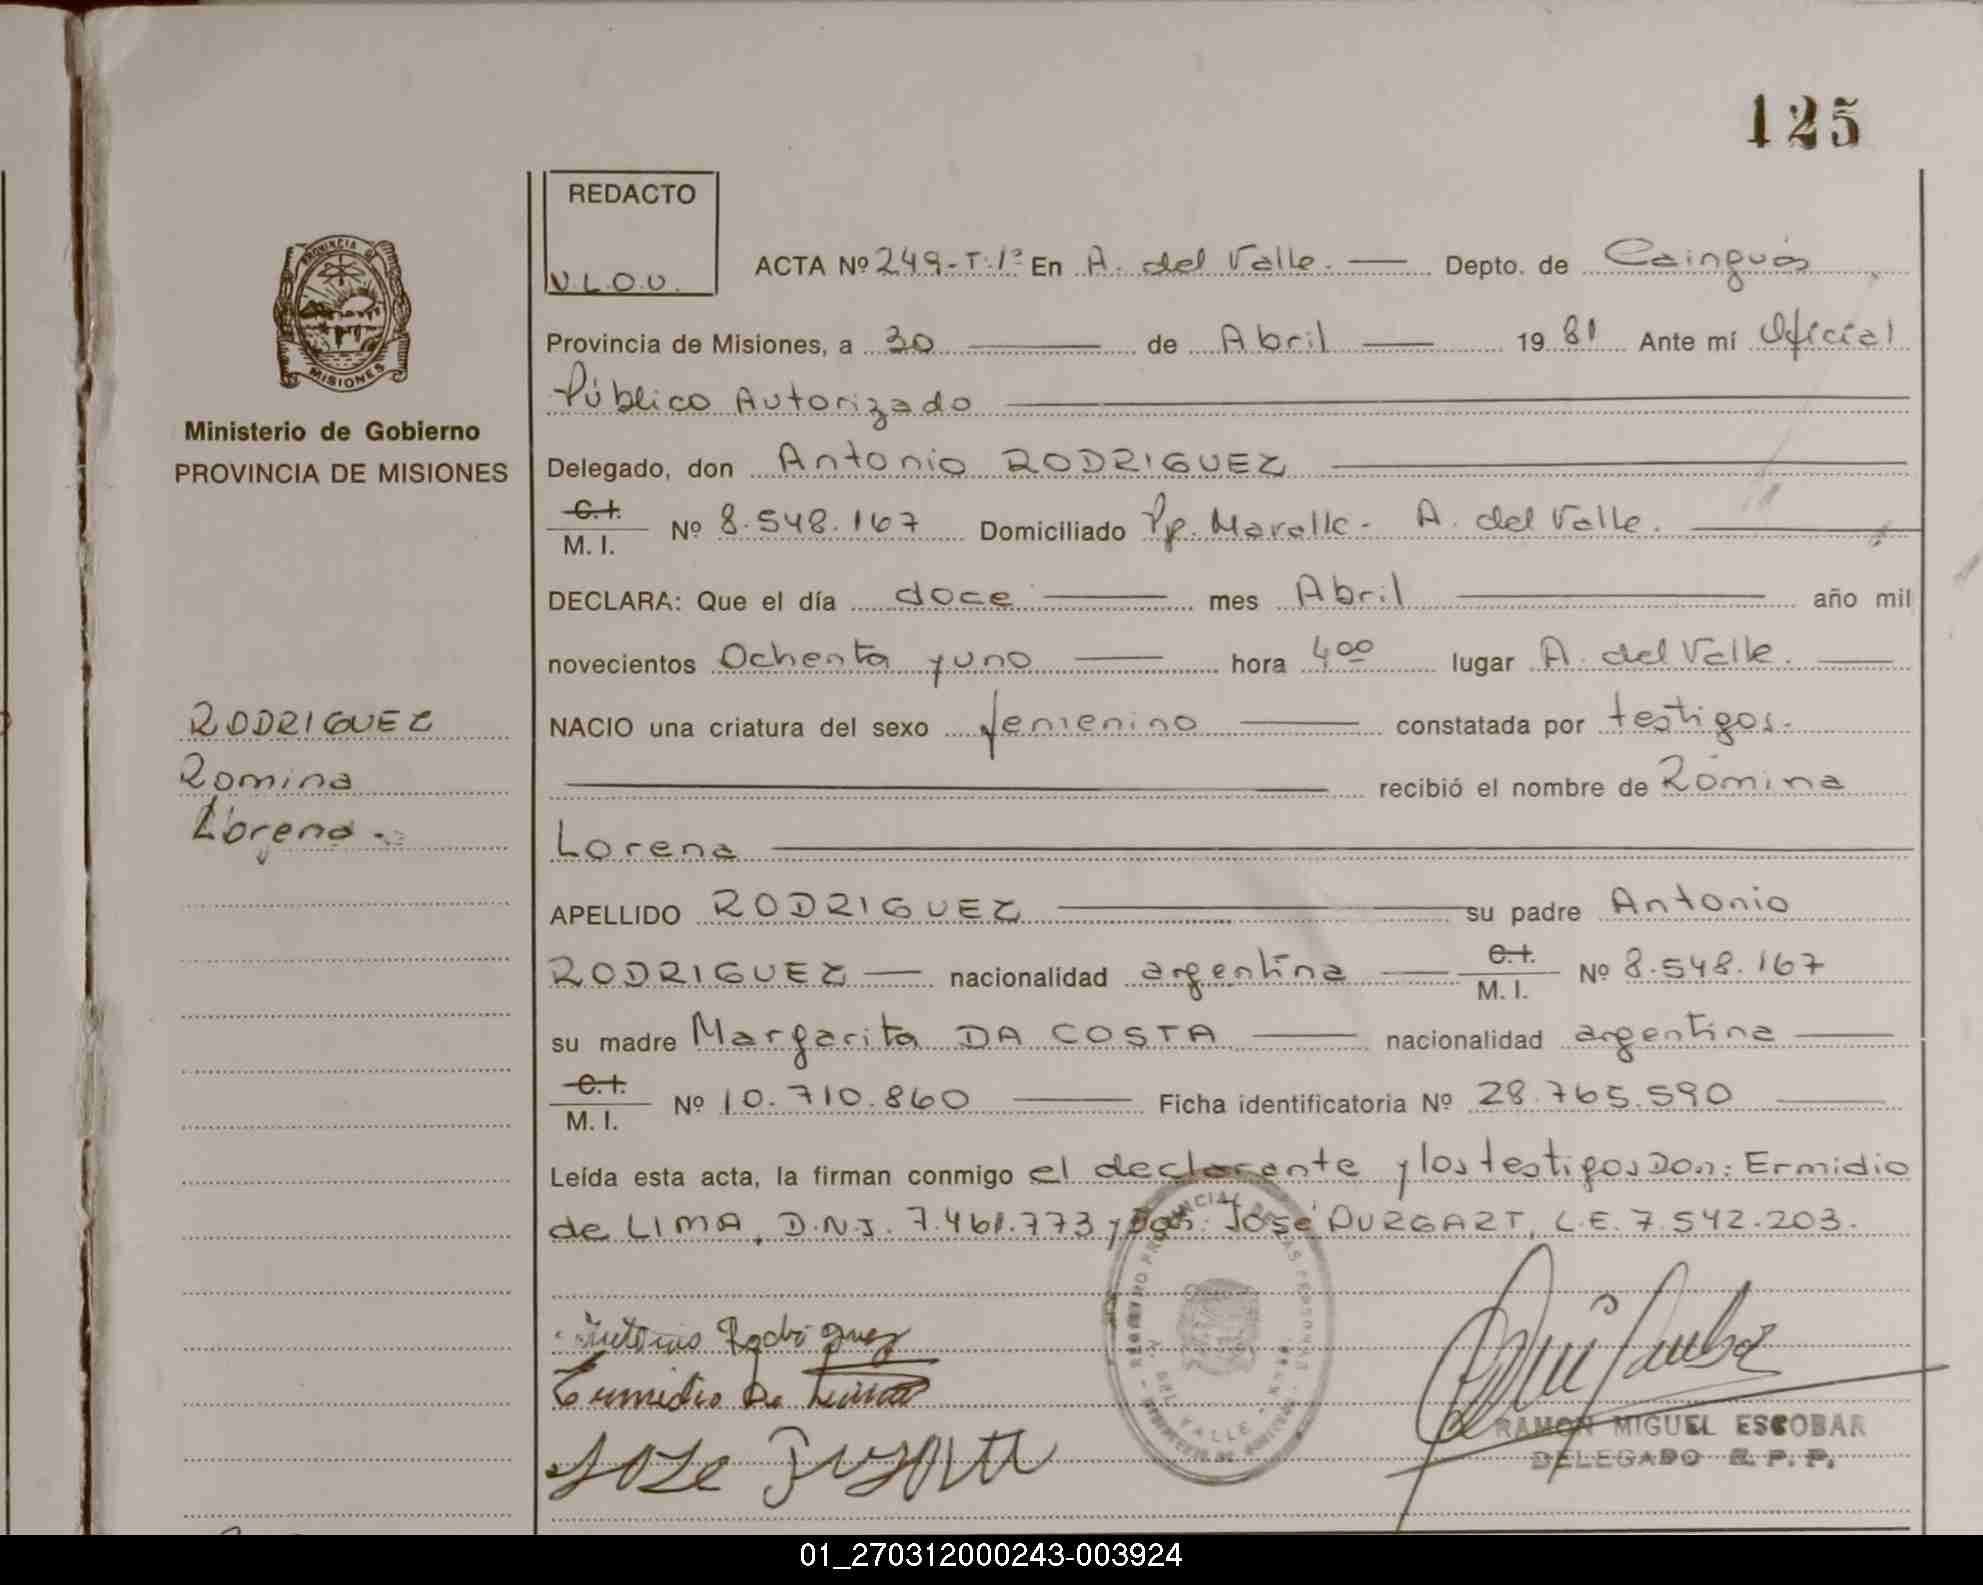 125
REDACTO
V.L.O.U.
ACTA Nº 249-T.1º En A. del Valle. Depto. de Cainguás
Provincia de Misiones, a 30 de Abril 19 81 Ante mí Oficial
Público Autorizado
PROVINCIA DE
MISIONES
Ministerio de Gobierno
PROVINCIA DE MISIONES
Delegado, don Antonio RODRIGUEZ
C.I.
M. I. Nº 8.548.167 Domiciliado Pje. Maralle- A. del Valle.
DECLARA: Que el día doce mes Abril año mil
novecientos Ochenta y uno hora 4 00 lugar A. del Valle.
RODRIGUEZ
Romina
Lorena.
NACIO una criatura del sexo femenino constatada por testigos.
recibió el nombre de Romina
Lorena
APELLIDO RODRIGUEZ su padre Antonio
RODRIGUEZ nacionalidad argentina C.I. M. I. Nº 8.548.167
su madre Margarita DA COSTA nacionalidad argentina
C.I.
M. I. Nº 10.710.860 Ficha identificatoria Nº 28.765.590
Leída esta acta, la firman conmigo el declarante y los testigos Don: Ermidio
de LIMA, D.N.I. 7.461.773 y Don: José DURGART, L.E. 7.542.203.
Antonio Rodriguez
Ermidio De Lima
Jose
A. DEL VALLE
RAMON MIGUEL ESCOBAR
DELEGADO R. P. P.
01_270312000243-003924